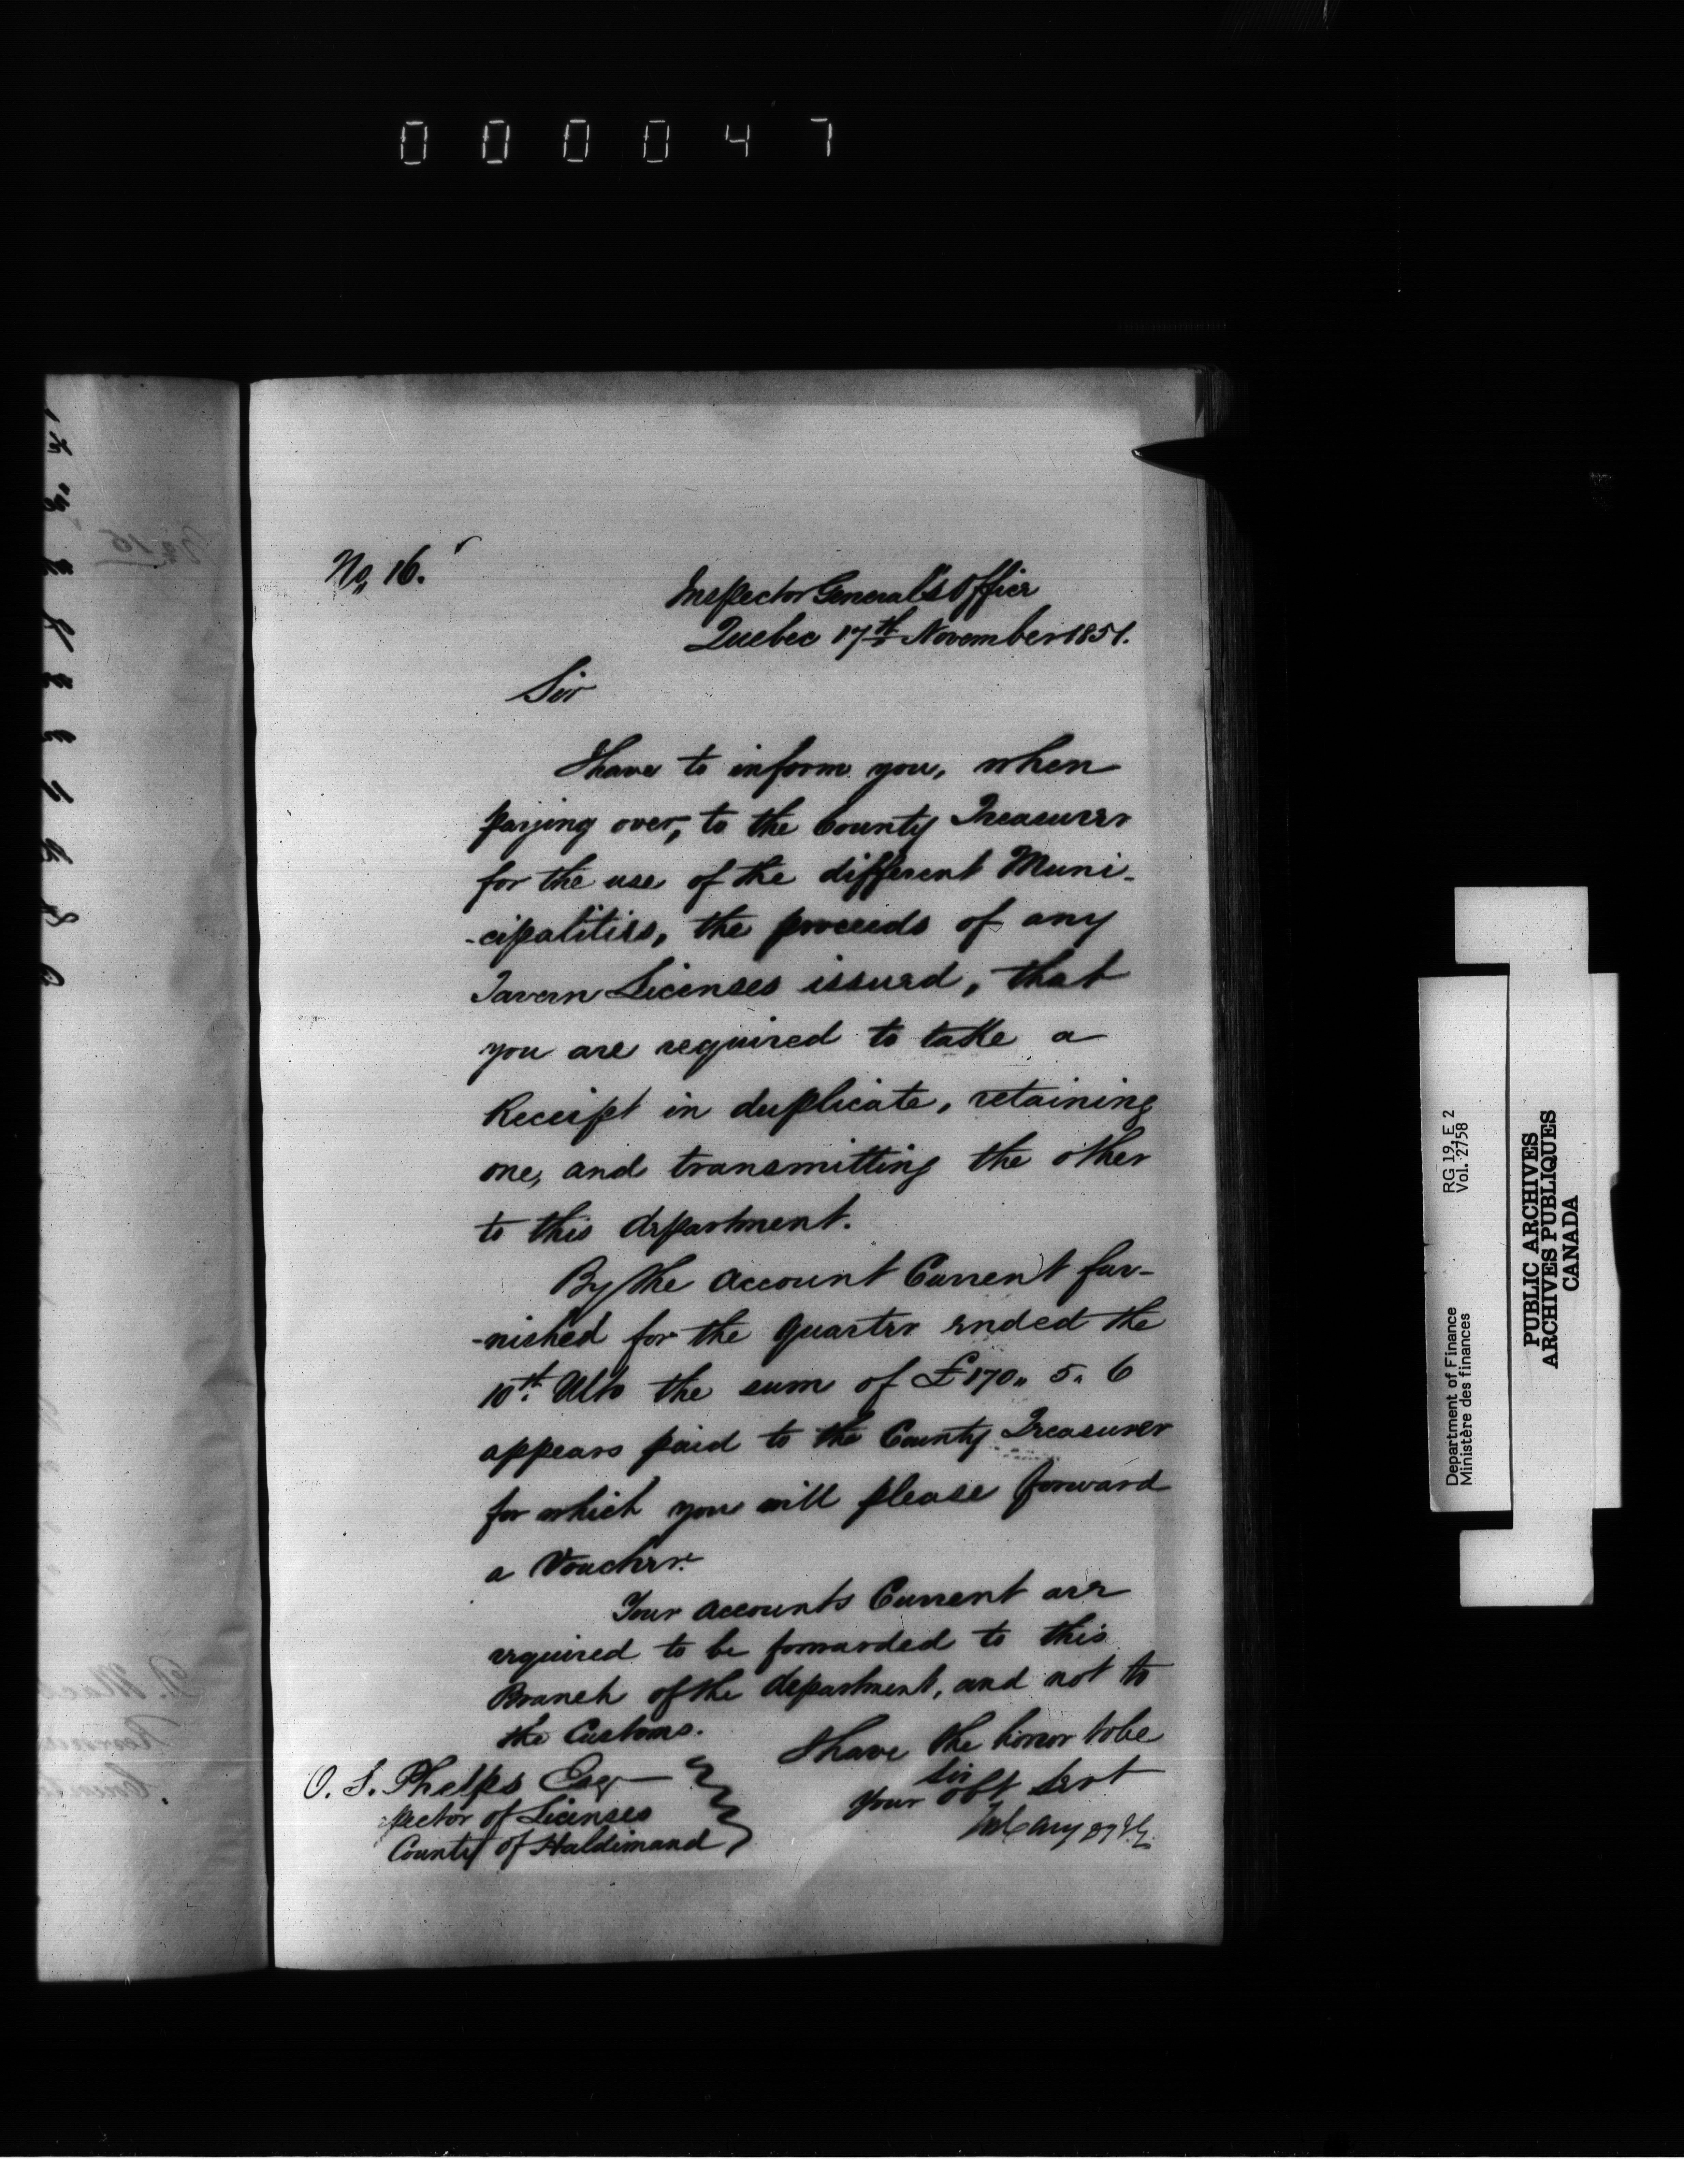 000047
No, 16.
Inspector General's Office
Quebec 17th November 1851.
Sir
I have to inform you, when
paying over, to the County Treasurer
for the use of the different Muni-
-cipalities, the proceeds of any
Tavern Licenses issued, that
you are required to take a
Receipt in duplicate, retaining
one, and transmitting the other
to this department.
By the Account Current fur-
-nished for the Quarter ended the
10th Ulto the sum of £170,, 5,, 6
appears paid to the County Treasurer
for which you will please forward
a Voucher.
Your Accounts Current are
required to be forwarded to this
Branch of the department, and not to
the Customs.
I have the honor to be
Sir
Your obt Servt
O. S. Phelps Esq
pector of Licenses
County of Haldimand
Department of Finance RG 19, E 2
Ministère des finances Vol. 2758
PUBLIC ARCHIVES
ARCHIVES PUBLIQUES
CANADA